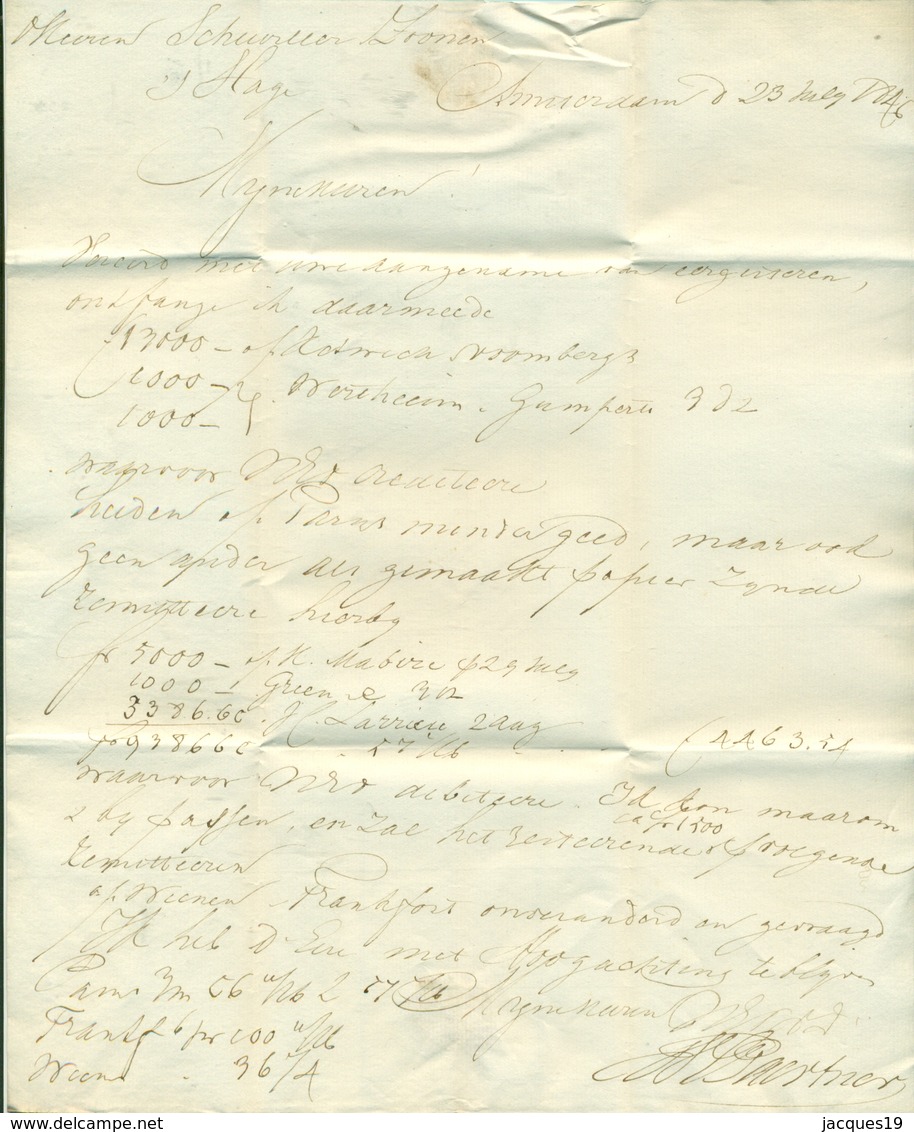 Heeren Scheurleer Zoonen
's Hage
Amsterdam d 23 July 1846
Mynheeren!
Vereerd met uwe aangename van eergisteren,
ontfange ik daarmeede
f 13000 – of Voombergh
1000 – Wertheim & Gompertz 3 d2
1000 –
waarvoor UEd crediteere
heeden of Parys minder goed, maar ook
geen ander als gemaakt papier zynde
remitteere hierby
fr 5000 – of K. Mabire p 29 July
1000 – Green & 3
3386.60 . H. Larrieu 2 Aug
fr 9386.60 . 57 f 4463.54
waarvoor UEd debiteere. Ik kon maar om
ca fr 1500
2 by passen, en zal het resteerende p volgende
remitteeren
of Weenen & Frankfort onveranderd en gevraagd
Ik heb d'Eer met Hoogachting te blyven
Parys 3/m 56 57
Mynheeren UEd
Frankf fr 100
Weenen . 36 1/4